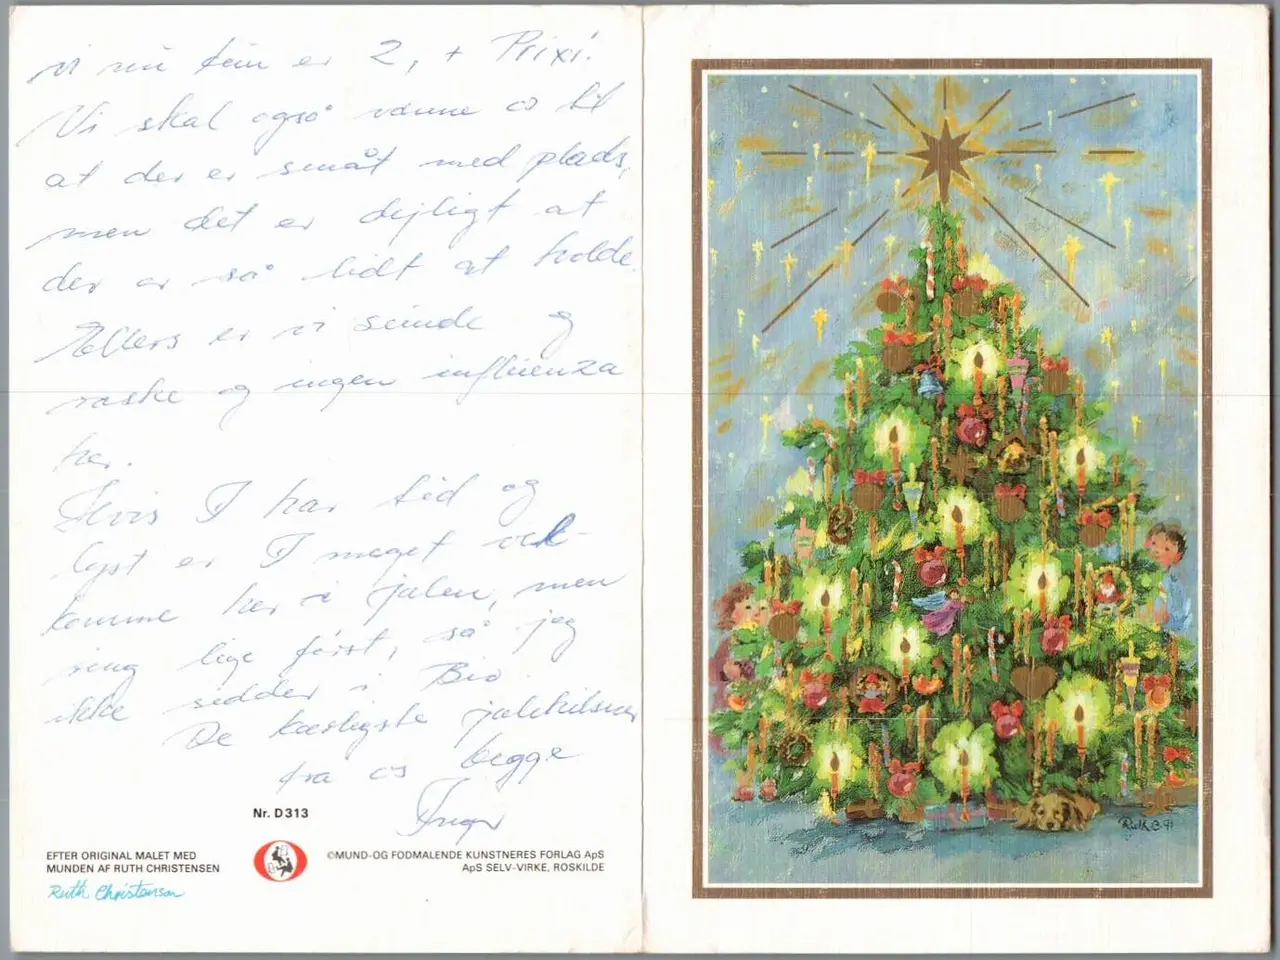 vi nu kun er 2, + Prixi.
Vi skal også vænne os til
at der er småt med plads,
men det er dejligt at
der er så lidt at holde.
Ellers er vi sunde og
raske og ingen influenza
her.
Hvis I har tid og
lyst er I meget vel-
komne her i julen, men
ring lige først, så jeg
ikke sidder i Bio.
De kærligste julehilsner
fra os begge
Inger
Nr. D313
EFTER ORIGINAL MALET MED
MUNDEN AF RUTH CHRISTENSEN
Ruth Christensen
©MUND-OG FODMALENDE KUNSTNERES FORLAG ApS
ApS SELV-VIRKE, ROSKILDE
Ruth C